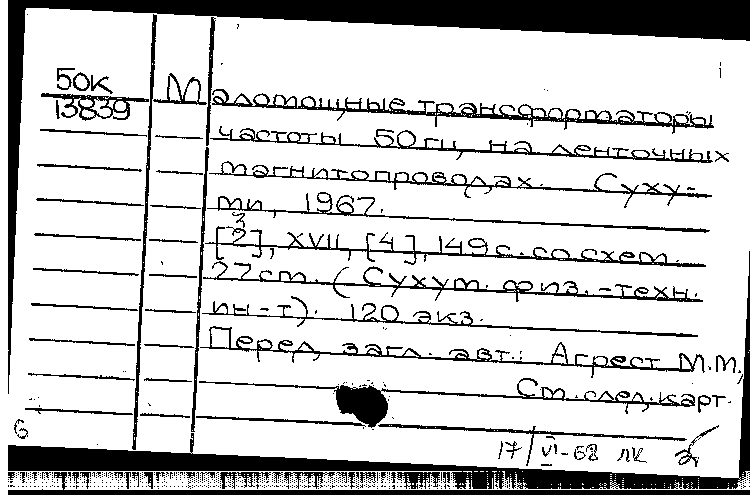 50К
13839
Маломощные трансформаторы
частоты 50 гц, на ленточных
магнитопроводах. Суху-
ми, 1967.
3
[2], XVII, [4], 149 с. со схем.
27 см. (Сухум. физ.-техн.
ин-т). 120 экз.
Перед загл. авт.: Агрест М.М,
См. след. карт.
6
17/VI-68 ЛК